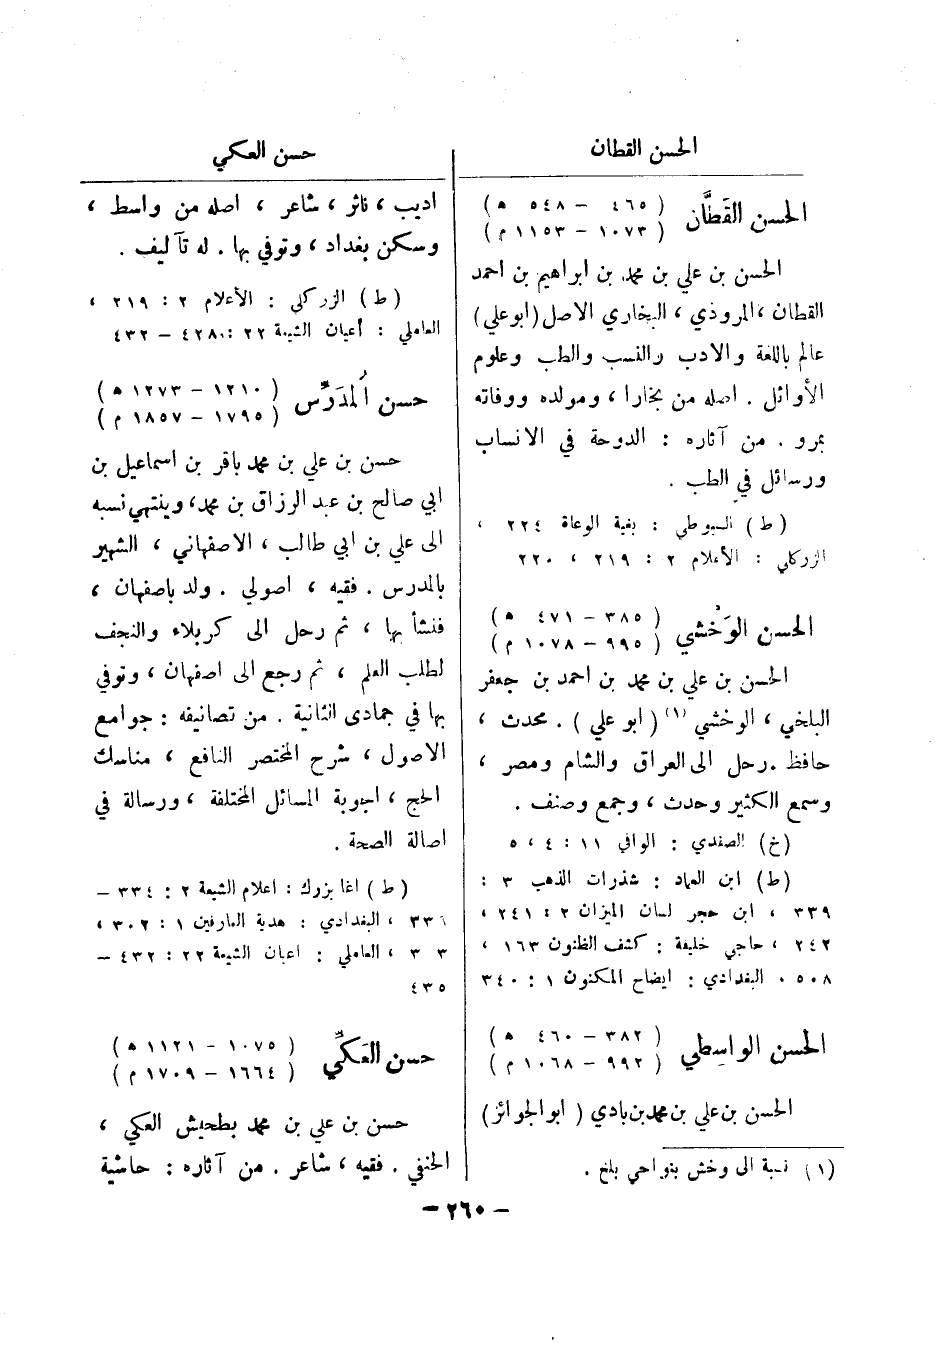 الحسن القطان
الحسن القَطَّان
( ٤٦٥ – ٥٤٨ ه )
( ١٠٧٣ – ١١٥٣ م )
الحسن بن علي بن محمد بن ابراهيم بن احمد
القطان ، المروذي ، البخاري الاصل (ابو علي)
عالم باللغة والادب والنسب والطب وعلوم
الأوائل . اصله من بخارا ، ومولده ووفاته
بمرو . من آثاره : الدوحة في الانساب
ورسائل في الطب .
( ط ) السيوطي : بغية الوعاة ٢٢٤ ،
الزركلي : الأعلام ٢ : ٢١٩ ، ٢٢٠
الحسن الوَخْشي
( ٣٨٥ – ٤٧١ ه )
( ٩٩٥ – ١٠٧٨ م )
الحسن بن علي بن محمد بن احمد بن جعفر
البلخي ، الوخشي (١) ( ابو علي ) . محدث ،
حافظ . رحل الى العراق والشام ومصر ،
وسمع الكثير وحدث ، وجمع وصنف .
(خ) الصفدي : الوافي ١١ : ٤ ، ٥
(ط) ابن العماد : شذرات الذهب ٣ :
٣٣٩ ، ابن حجر لسان الميزان ٢ : ٢٤١ ،
٢٤٢ ، حاجي خليفة : كشف الظنون ١٦٣ ،
٥٠٨ . البغدادي : ايضاح المكنون ١ : ٣٤٠
الحسن الواسِطي
( ٣٨٢ – ٤٦٠ ه )
( ٩٩٢ – ١٠٦٨ م )
الحسن بن علي بن محمد بن بادي ( ابو الجوائز )
(١) نسبة الى وخش بنواحي بلخ .
حسن العكي
اديب ، ناثر ، شاعر ، اصله من واسط ،
وسكن بغداد ، وتوفي بها . له تآليف .
( ط ) الزركلي : الأعلام ٢ : ٢١٩ ،
العاملي : أعيان الشيعة ٢٢ : ٤٢٨ – ٤٣٢
حسن المُدَرِّس
( ١٢١٠ – ١٢٧٣ ه )
( ١٧٩٥ – ١٨٥٧ م )
حسن بن علي بن محمد باقر بن اسماعيل بن
ابي صالح بن عبد الرزاق بن محمد ، وينتهي نسبه
الى علي بن ابي طالب ، الاصفهاني ، الشهير
بالمدرس . فقيه ، اصولي . ولد باصفهان ،
فنشأ بها ، ثم رحل الى كربلاء والنجف
لطلب العلم ، ثم رجع الى اصفهان ، وتوفي
بها في جمادى الثانية . من تصانيفه : جوامع
الاصول ، شرح المختصر النافع ، مناسك
الحج ، اجوبة المسائل المختلفة ، ورسالة في
اصالة الصحة .
( ط ) اغا بزرك : اعلام الشيعة ٢ : ٣٣٤ –
٣٣٦ ، البغدادي : هدية العارفين ١ : ٣٠٢ ،
٣٠٣ ، العاملي : اعيان الشيعة ٢٢ : ٤٣٢ –
٤٣٥
حسن العَكِّي
( ١٠٧٥ – ١١٢١ ه )
( ١٦٦٤ – ١٧٠٩ م )
حسن بن علي بن محمد بطحيش العكي ،
الحنفي . فقيه ، شاعر . من آثاره : حاشية
– ٢٦٠ –